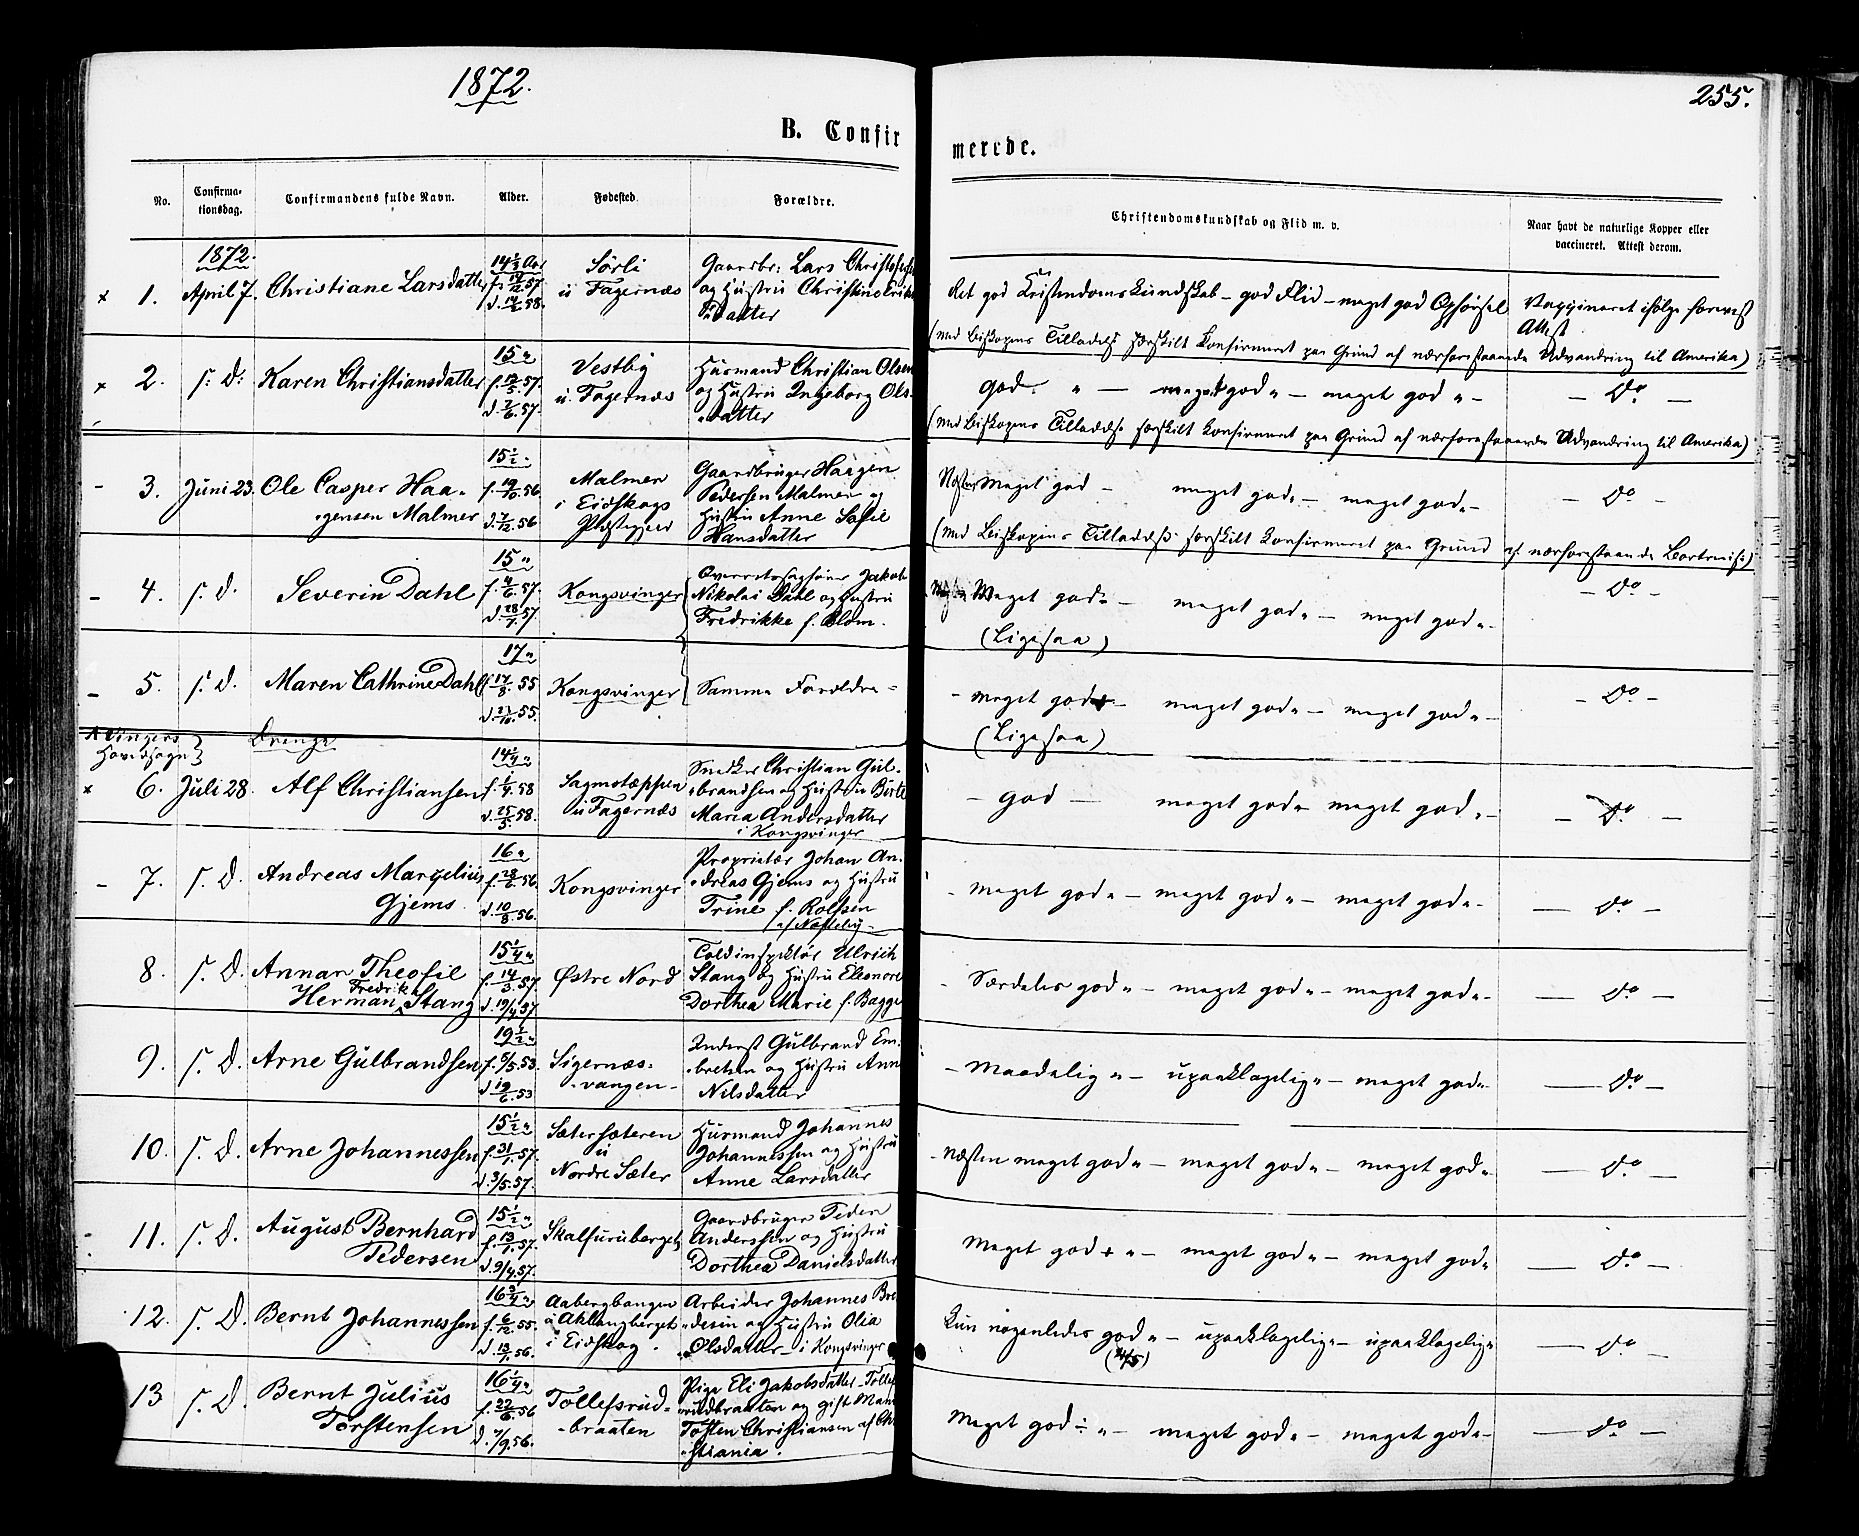 1872.
255.
B. Confirmerede.
No.
Confirmationsdag.
Confirmandens fulde Navn.
Alder.
Fødested.
Forældre.
Christendomskundskab og Flid m. v.
Naar havt de naturlige Kopper eller
vaccineret. Attest derom.
1872.
1. April 7. Christiane Larsdatter
f. 19/12 57.
Sörli
u Fagernæs
Gaardbr: Lars Christ
og Hustru Christine Eriks
datter
Ret god Kristendomskundskab – god Flid – meget god Opførsel
Attest
(med Biskopens Tilladelse særskilt konfirmeret paa Grund af nærforestaaende Udvandring til Amerika)
2. s: d: Karen Christiansdatter
15 "
Vestby
u. Fagernæs
Husmand Christian Olsen
og Hustru Ingeborg Ols-
datter
god " – meget god " – meget god " –
– Do –
(med Biskopens Tilladelse særskilt konfirmeret paa Grund af nærforestaaende Udvandring til Amerika)
3. Juni 23. Ole Casper Haa-
gensen Malmer
15 1/2 "
f. 19/10 56.
d. 7/12 56
Malmer
i Eidskogs
Præstegjeld
Gaardbruger Haagen
Pedersen Malmer og
Hustru Anne Sofie
Hansdatter
Næsten Meget god – meget god " – meget god " –
– Do –
(med Biskopens Tilladelse særskilt konfirmeret paa Grund af nærforestaaende Bortreise)
4. s. d. Severin Dahl
15 "
f. 4/6 57.
Kongsvinger
Overretssagfører Jakob
Nikolai Dahl og Hustru
Fredrikke f. Blom.
Meget god " – meget god " – meget god " –
– Do –
(Ligesaa)
5. s. d. Maren Cathrine Dahl
17 "
f. 17/8 55
Kongsvinger
Samme Forældre –
– meget god – meget god " – meget god " –
– Do –
(Ligesaa)
Vingers
Hovedsogn
Drenge
6. Juli 28. Alf Christiansen
14 1/4 "
d. 25/5 58.
Sagmotæppen
u Fagernæs
Snedker Christian Gul-
brandsen og Hustru Birte
Maria Andersdatter
i Kongsvinger
– god – meget god " – meget god " –
– Do –
7. s. d. Andreas Marcelius
Gjems.
16 "
f. 28/6 56.
d. 10/8 56.
Kongsvinger
Proprietær Johan An-
dreas Gjems og Hustru
Trine f. Rolfsen
– meget god " – meget god " – meget god " –
– Do –
8. s. d. Annar Theofil
Fredrik
Herman Stang
15 1/4 "
f. 14/3 57.
d. 19/4 57
Østre Nord
Toldinspektør Ulrich
Stang og Hustru Eleonore
Dorthea Marie f. Bagge
– Særdeles god " – meget god " – meget god " –
– Do –
9. s. d. Arne Gulbrandsen
19 1/4 "
f. 5/5 53.
d. 19/6 53
Sigernæs-
vangen –
Inderst Gulbrand Em-
bretsen og Hustru Anne
Nilsdatter
– Maadelig " – upaaklagelig " – meget god "
– Do –
10. s. d. Arne Johannessen
15 1/2 "
f. 31/1 57.
d. 3/5 57.
Sætersæteren
u
Nordre Sæter
Husmand Johannes
Johannessen og Hustru
Anne Larsdatter
– Næsten meget god " – meget god " – meget god "
– Do –
11. s. d. August Bernhard
Pedersen
15 1/2 "
f. 13/1 57.
d. 9/4 57.
Skalfuruberget
Gaardbruger Peder
Anderssen og Hustru
Dorthea Danielsdatter
Meget god + " – meget god " – meget god "
– Do –
12. s. d. Bernt Johannessen
16 3/4 "
f. 6/12 55.
d. 13/1 56.
Aabergbangen
u Aklangberget
i Eidskog.
Arbeider Johannes Bre-
desen og Hustru Olia
Olsdatter – i Kongsvinger
Kun nogenledes god " – upaaklagelig " – upaaklagelig "
– Do –
13 s. d. Bernt Julius
Torstensen
16 1/4 "
f. 22/6 56
d. 7/9 56.
Tollefsrud-
braaten
Pige Eli Jakobsdatter – Tollef
rudbraaten og gift Mand
Tosten Christiansen af Chri
stiania.
Meget god ÷ " – meget god " – meget god " –
– Do –